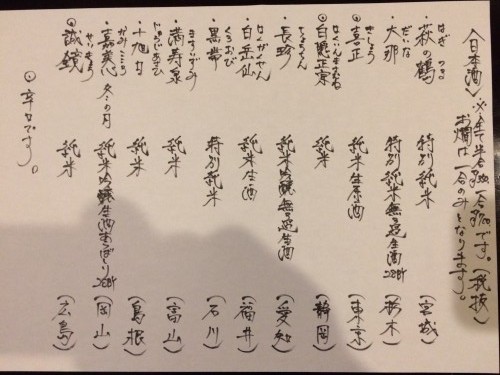 〈日本酒〉※全て半合 一合です。(税抜)
お燗は一合のみとなります。
はぎ つる
・萩の鶴 特別純米 (宮城)
だいな
・大那 特別純米無濾過生酒28BY (栃木)
きしょう
◎喜正 純米生原酒 (東京)
はくいんまさむね
◎白隠正宗 純米 (静岡)
ちょうちん
・長珍 純米吟醸無濾過生酒 (愛知)
はくがくせん
・白岳仙 純米生酒 (福井)
くろおび
・黒帯 特別純米 (石川)
ますいずみ
・満寿泉 純米 (富山)
じゅうじあさひ
・十旭日 純米 (島根)
かみこころ
・嘉美心 冬の月 純米吟醸生酒あらばしり28BY (岡山)
せいきょう
◎誠鏡 純米 (広島)
◎辛口です。